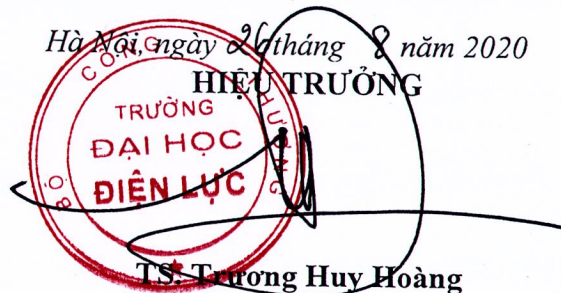 Hà Nội, ngày 26 tháng 8 năm 2020
HIỆU TRƯỞNG
BỘ CÔNG THƯƠNG
TRƯỜNG
ĐẠI HỌC
ĐIỆN LỰC
TS. Trương Huy Hoàng